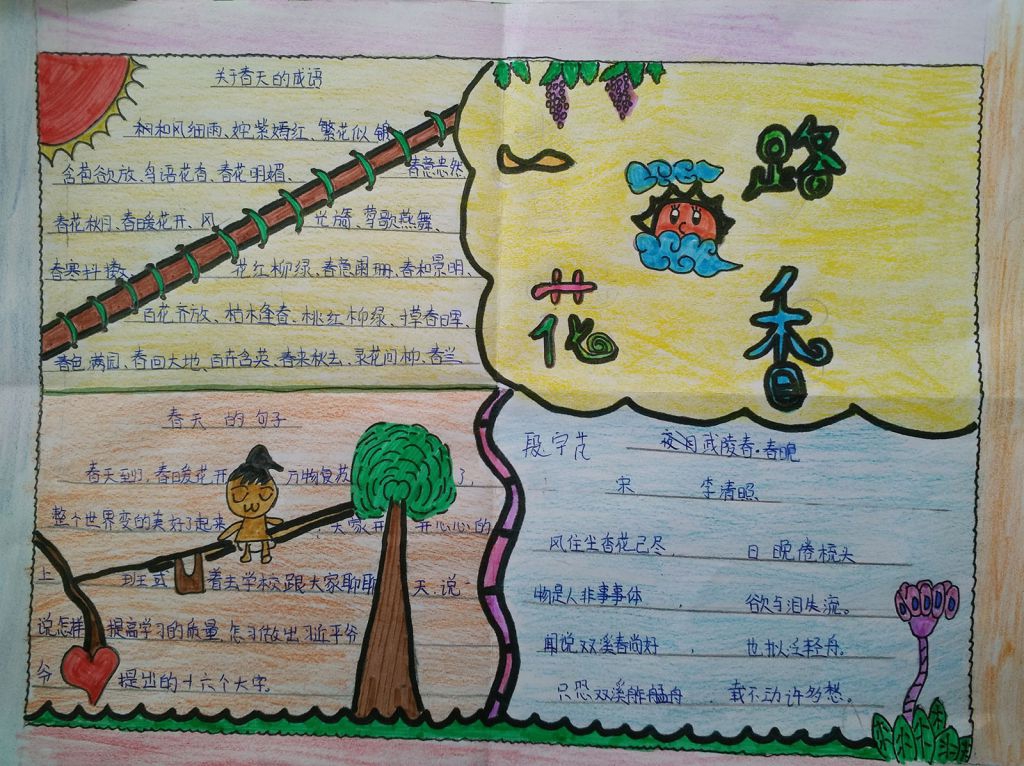 关于春天的成语
和风细雨、姹紫嫣红、繁花似锦
含苞欲放、鸟语花香、春花明媚、春意盎然
春花秋月、春暖花开、风光旖、莺歌燕舞、
春寒抖擞、花红柳绿、春意阑珊、春和景明、
百花齐放、枯木逢春、桃红柳绿、寸草春晖、
春色满园、春回大地、百卉含英、春来秋去、录花问柳、春兰
一路
花香
春天的句子
春天到了,春暖花开 万物复苏 了,
整个世界变的美好了起来 ,大家开 开心心的
上 班 式 着去学校跟大家聊聊天,说
说怎样提高学习的质量 怎习做出习近平爷
爷 提出的十六个大字。
段宇 武陵春·春晚
宋 李清照
风住尘香花已尽, 日晚倦梳头
物是人非事事体, 欲与泪失流。
闻说双溪春尚好, 也拟泛轻舟。
只恐双溪舴艋舟, 载不动许多愁。